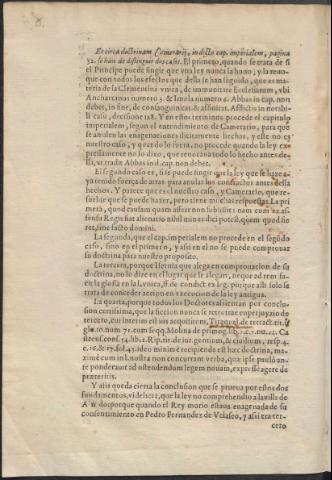 Et circa doctrinam Camerarij, in dicto cap. imperialem, pagina
32. se han de distinguir dos casos. El primero, quando se trata de si
el Principe puede fingir que vna ley nunca la huuo, y la reuo-
que con todos los efectos que della se han seguido, que es ma-
teria de la Clementina vnica, de immunitate Ecclesiarum, vbi
Ancharranus numero 3. & Imola numero 6. Abbas in cap. non
debet, in fine, de consanguinitate, & affinitate. Afflictis in notabi-
li casu, decisione 128. Y en estos terminos procede el capitulo
imperialem, segun el entendimiento de Camerario, para que
se anulen las enagenaciones licitamente hechas, y este no es
nuestro caso, y quando lo fuera, no procede quando la ley ex-
pressamente no lo dixo, que reuocaua todo lo hecho antes de-
lla, vt tradit Abbas in d. cap. non debet.
El segundo caso es, si se puede fingir que la ley que se haze a-
ya tenido fuerça de atras para anular los contractos antes della
hechos. Y parece que es el nuestro caso, y Camerario, que re-
suelue que se puede hazer, pero tiene muchas respuestas. La pri
mera, quod causam quam assert non subsistit nam cum ex as-
sensu Regis fiat alienatio nihil minus dici potest, quem quod so
ret, sine facto domini.
La segunda, que el cap. imperialem no procede en el segũdo
caso, sino en el primero, y assi en el no se puede comprouar
su doctrina para nuestro proposito.
La tercera, porque Isernia que alega en comprouacion de su
doctrina, no lo dize en el lugar que le alegan, neque ad rem fa-
cit la glossa en la l. vnica, ff. de condict. ex leg. porque alli solo se
trata de conceder accion en reuocacion de la ley antigua.
La quarta, porque todos los Doctores assientan por conclu-
sion certissima, que la ficcion nunca se retrotrae en perjuyzio de
tercero, cui interim est ius acquisitum, Tiraquel. de retract. tit. §.
glo. 10. num. 71. cum seqq. Molina de primog. lib. 1. c. nu. 12. Ca
stres. conf. 54. lib. 2. Rip. tit. de iur. gentium, & ciuilium, resp. 4.
c. 16. & 17. fol. 45. ideo minime recipiende est hæc doctrina, ma-
ximè cum in l. nostra non concurrant verba, quæ ipse Paulò an-
te ponderauit ad ostendendam legem nouam, expresse agere de
præteritis.
Y assi queda cierta la conclusion que se prueua por estos dos
fundamentos, videlicet, que la ley no comprehendio a la villa de
porque quando el Rey murio estaua enagenada de su
consentimiento en Pedro Fernandez de Velasco, y assi era ter-
cero